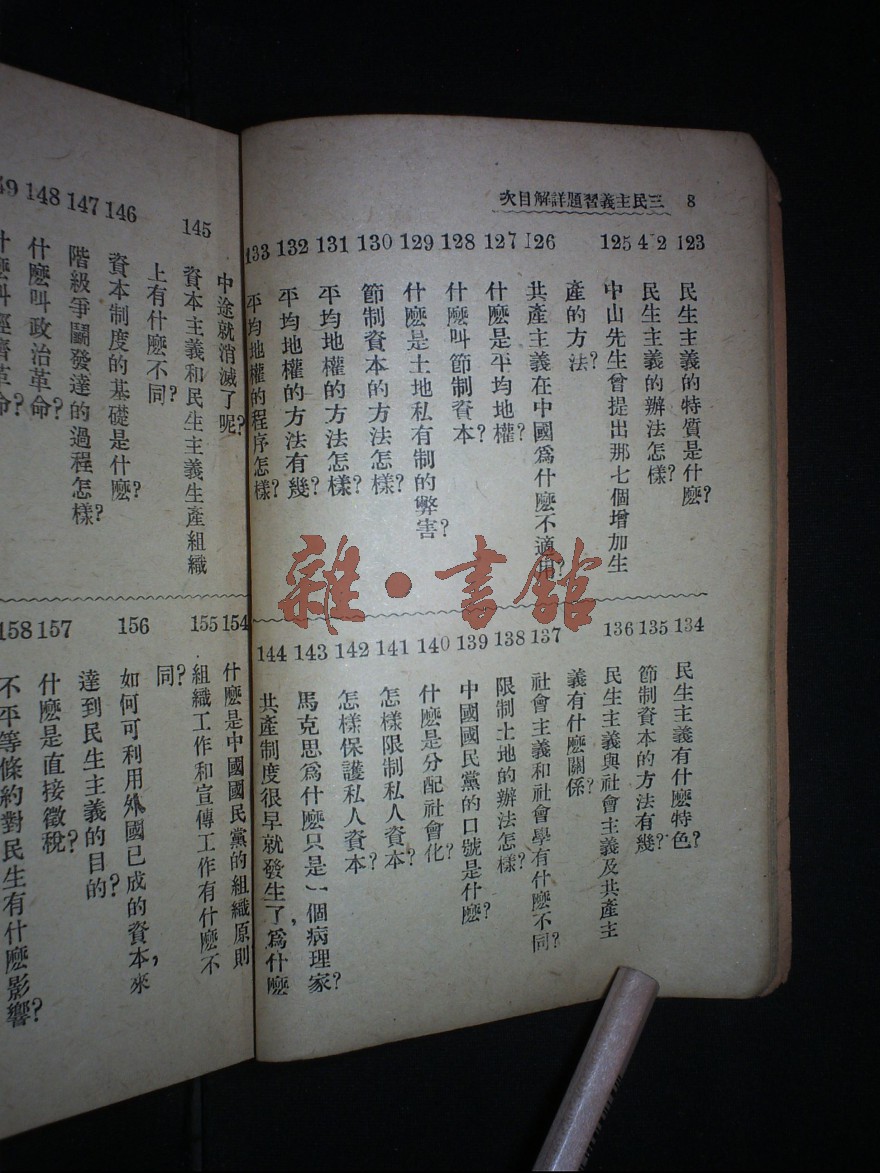 8 三民主義習題詳解目次
123 民生主義的特質是什麽?
4 2 民生主義的辦法怎樣?
125 中山先生曾提出那七個增加生
產的方法?
126 共產主義在中國爲什麽不適用?
127 什麽是平均地權?
128 什麽叫節制資本?
129 什麽是土地私有制的弊害?
130 節制資本的方法怎樣?
131 平均地權的方法怎樣?
132 平均地權的方法有幾?
133 平均地權的程序怎樣?
134 民生主義有什麽特色?
135 節制資本的方法有幾?
136 民生主義與社會主義及共產主
義有什麽關係?
137 社會主義和社會學有什麽不同?
138 限制土地的辦法怎樣?
139 中國國民黨的口號是什麽?
140 什麽是分配社會化?
141 怎樣限制私人資本?
142 怎樣保護私人資本?
143 馬克思爲什麽只是一個病理家?
144 共產制度很早就發生了,爲什麽
中途就消滅了呢?
145 資本主義和民生主義生產組織
上有什麽不同?
146 資本制度的基礎是什麽?
147 階級爭鬭發達的過程怎樣?
148 什麽叫政治革命?
49 什麽叫經濟革命?
154 什麽是中國國民黨的組織原則
155 組織工作和宣傳工作有什麽不
同?
156 如何可利用外國已成的資本,來
達到民生主義的目的?
157 什麽是直接徵稅?
158 不平等條約對民生有什麽影響?
雜·書館